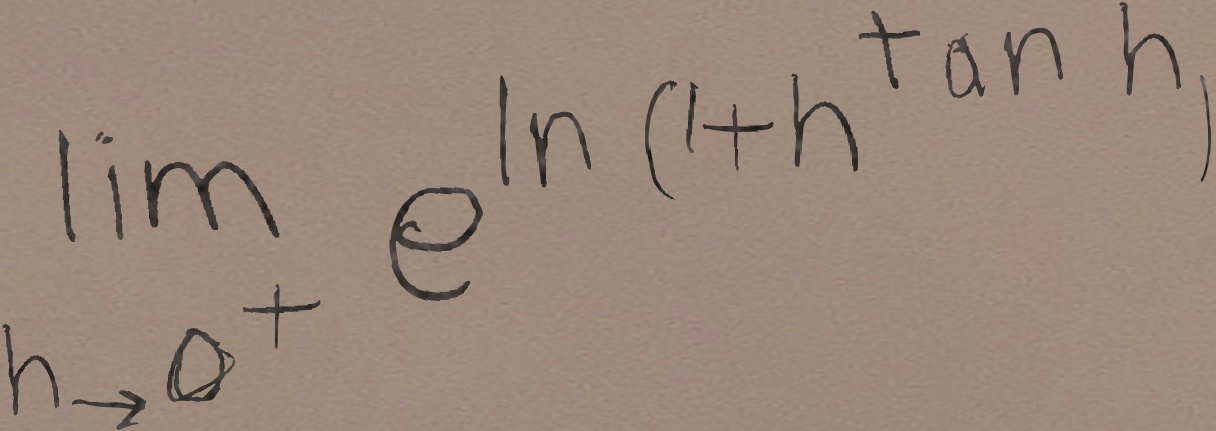 \lim_{h \to 0^+} e^{\ln (1+h^{\tan h})}